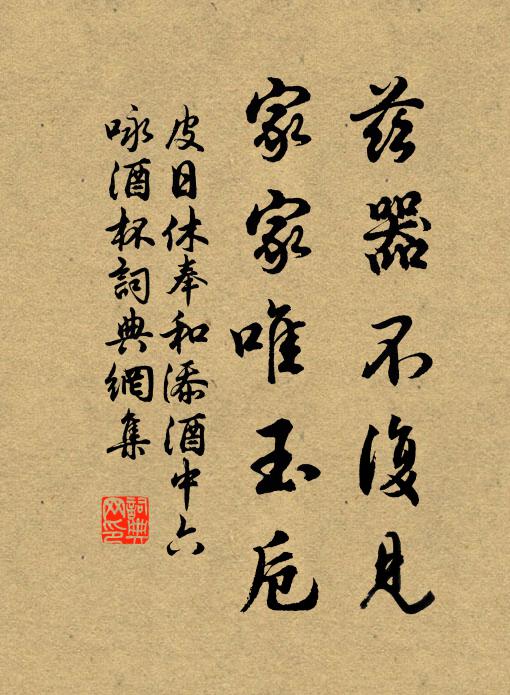 茲器不復見
家家唯玉卮
皮日休奉和添酒中六
咏酒杯詞典網集
詞典
网印